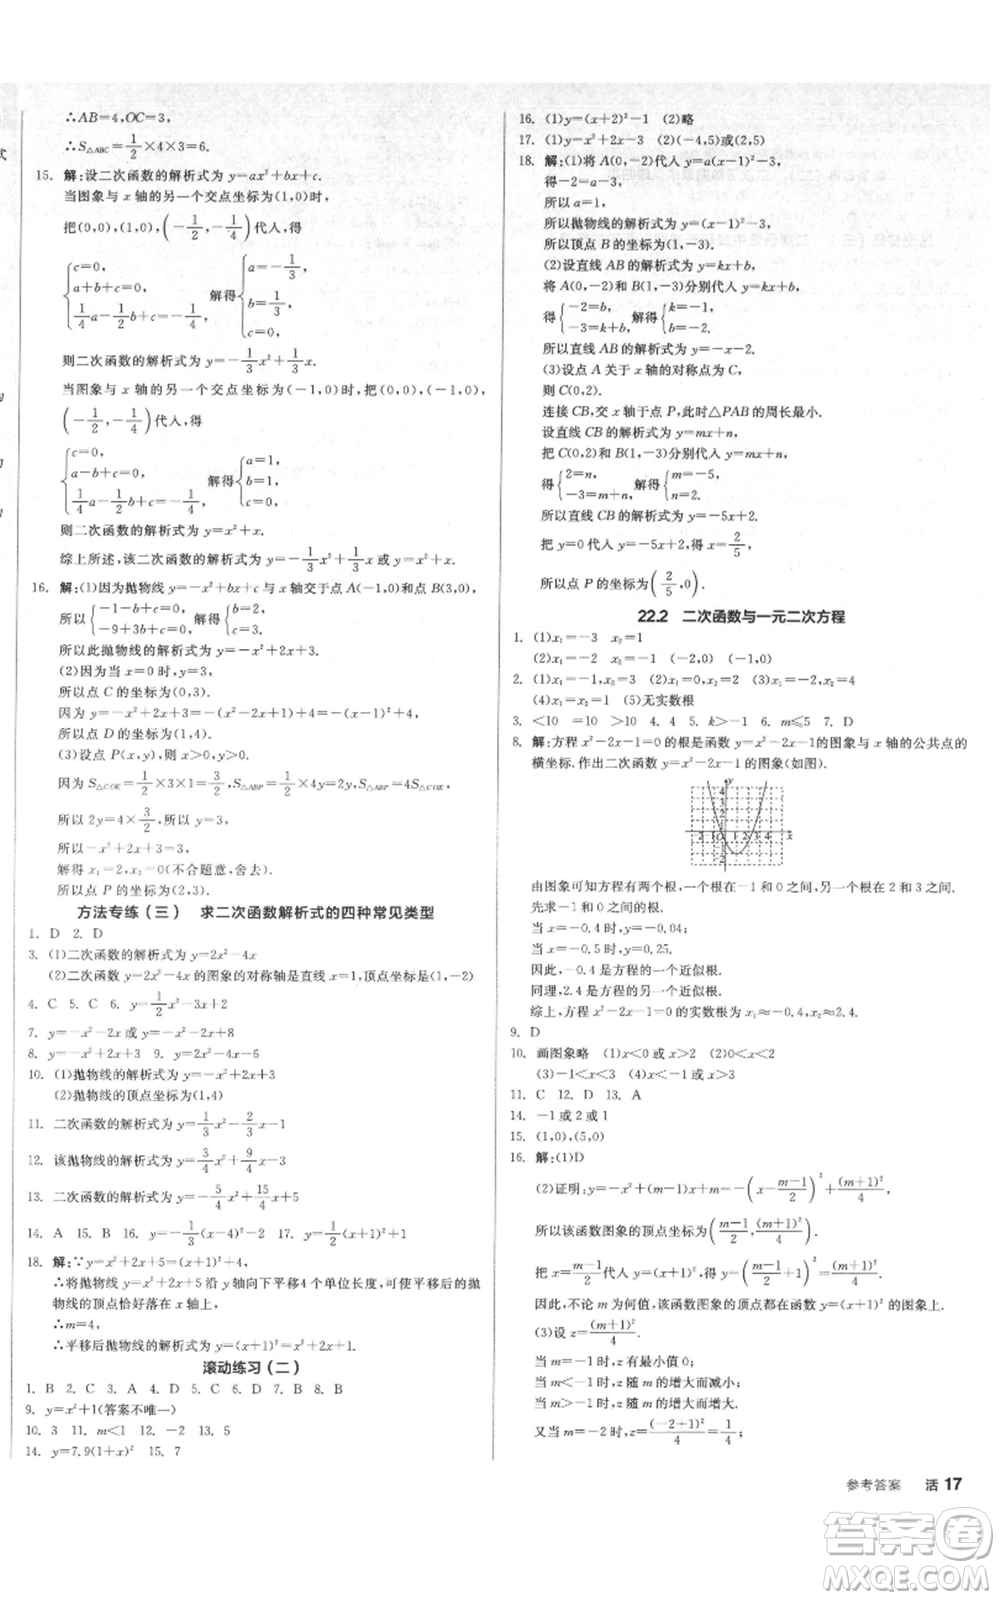 ∴AB=4,OC=3,
∴S△ABC=1/2×4×3=6.
15. 解:设二次函数的解析式为 y=ax²+bx+c.
当图象与 x 轴的另一个交点坐标为(1,0)时,
把(0,0),(1,0),(-1/2,-1/4)代人,得
{c=0, a+b+c=0, 1/4a-1/2b+c=-1/4, 解得{a=-1/3, b=1/3, c=0,
则二次函数的解析式为 y=-1/3x²+1/3x.
当图象与 x 轴的另一个交点坐标为(-1,0)时,把(0,0),(-1,0),
(-1/2,-1/4)代人,得
{c=0, a-b+c=0, 1/4a-1/2b+c=-1/4, 解得{a=1, b=1, c=0,
则二次函数的解析式为 y=x²+x.
综上所述,该二次函数的解析式为 y=-1/3x²+1/3x 或 y=x²+x.
16. 解:(1)因为抛物线 y=-x²+bx+c 与 x 轴交于点 A(-1,0)和点 B(3,0),
所以{-1-b+c=0, -9+3b+c=0, 解得{b=2, c=3.
所以此抛物线的解析式为 y=-x²+2x+3.
(2)因为当 x=0 时,y=3,
所以点 C 的坐标为(0,3).
因为 y=-x²+2x+3=-(x-1)²+4,
所以点 D 的坐标为(1,4).
(3)设点 P(x,y),则 x>0,y>0.
因为 S△COE=1/2×3×1=3/2,S△ABP=1/2×4y=2y,S△ABP=4S△COE,
所以 2y=4×3/2,所以 y=3,
所以-x²+2x+3=3,
解得 x₁=2,x₂=0(不合题意,舍去).
所以点 P 的坐标为(2,3).
方法专练(三) 求二次函数解析式的四种常见类型
1. D 2. D
3. (1)二次函数的解析式为 y=2x²-4x
(2)二次函数 y=2x²-4x 的图象的对称轴是直线 x=1,顶点坐标是(1,-2)
4. C 5. C 6. y=1/2x²-3x+2
7. y=-x²-2x 或 y=-x²-2x+8
8. y=-x²+2x+3 9. y=2x²-4x-6
10. (1)抛物线的解析式为 y=-x²+2x+3
(2)抛物线的顶点坐标为(1,4)
11. 二次函数的解析式为 y=1/3x²-2/3x-1
12. 该抛物线的解析式为 y=3/4x²+9/4x-3
13. 二次函数的解析式为 y=-5/4x²+15/4x+5
14. A 15. A 16. y=-1/3(x-4)²-2 17. y=-(x+1)²+1
18. 解:∵y=x²+2x+5=(x+1)²+4,
∴将抛物线 y=x²+2x+5 沿 y 轴向下平移4 个单位长度,可使平移后的抛
物线的顶点恰好落在 x 轴上,
∴m=4,
∴平移后抛物线的解析式为 y=(x+1)²=x²+2x+1.
滚动练习(二)
1. B 2. C 3. A 4. D 5. C 6. D 7. B 8. B
9. y=x²+1(答案不唯一)
10. 3 11. m<1 12. -2 13. 5
14. y=7.9(1+x)² 15. 7
16. (1)y=(x+2)²-1 (2)略
17. (1)y=x²+2x-3 (2)(-4,5)或(2,5)
18. 解:(1)将 A(0,-2)代人 y=a(x-1)²-3,
得-2=a-3,
所以 a=1,
所以抛物线的解析式为 y=(x-1)²-3,
所以顶点 B 的坐标为(1,-3).
(2)设直线 AB 的解析式为 y=kx+b,
将 A(0,-2)和 B(1,-3)分别代人 y=kx+b,
得{-2=b, -3=k+b, 解得{k=-1, b=-2.
所以直线 AB 的解析式为 y=-x-2.
(3)设点 A 关于 x 轴的对称点为 C,
则 C(0,2).
连接 CB,交 x 轴于点 P,此时△PAB 的周长最小.
设直线 CB 的解析式为 y=mx+n,
把 C(0,2)和 B(1,-3)分别代人 y=mx+n,
得{2=n, -3=m+n, 解得{m=-5, n=2.
所以直线 CB 的解析式为 y=-5x+2.
把 y=0 代人 y=-5x+2,得 x=2/5,
所以点 P 的坐标为(2/5,0).
22.2 二次函数与一元二次方程
1. (1)x₁=-3 x₂=1
(2)x₁=-2 x₂=-1 (-2,0) (-1,0)
2. (1)x₁=-1,x₂=3 (2)x₁=0,x₂=2 (3)x₁=-2,x₂=4
(4)x₁=x₂=1 (5)无实数根
3. <10 =10 >10 4. 4 5. k>-1 6. m≤5 7. D
8. 解:方程 x²-2x-1=0 的根是函数 y=x²-2x-1 的图象与 x 轴的公共点的
横坐标.作出二次函数 y=x²-2x-1 的图象(如图).
由图象可知方程有两个根,一个在-1 和 0 之间,另一个在 2 和 3 之间.
先求-1 和 0 之间的根.
当 x=-0.4 时,y=-0.04;
当 x=-0.5 时,y=0.25.
因此,-0.4 是方程的一个近似根.
同理,2.4 是方程的另一个近似根.
综上,方程 x²-2x-1=0 的实数根为 x₁≈-0.4,x₂≈2.4.
9. D
10. 画图象略 (1)x<0 或 x>2 (2)0<x<2
(3)-1<x<3 (4)x<-1 或 x>3
11. C 12. D 13. A
14. -1 或 2 或 1
15. (1,0),(5,0)
16. 解:(1)D
(2)证明:y=-x²+(m-1)x+m=-(x-(m-1)/2)²+(m+1)²/4,
所以该函数图象的顶点坐标为((m-1)/2,(m+1)²/4).
把 x=(m-1)/2 代人 y=(x+1)²,得 y=((m-1)/2+1)²=(m+1)²/4,
因此,不论 m 为何值,该函数图象的顶点都在函数 y=(x+1)² 的图象上.
(3)设 z=(m+1)²/4.
当 m=-1 时,z 有最小值 0;
当 m<-1 时,z 随 m 的增大而减小;
当 m>-1 时,z 随 m 的增大而增大.
又当 m=-2 时,z=(-2+1)²/4=1/4;
参考答案 活 17
答案卷